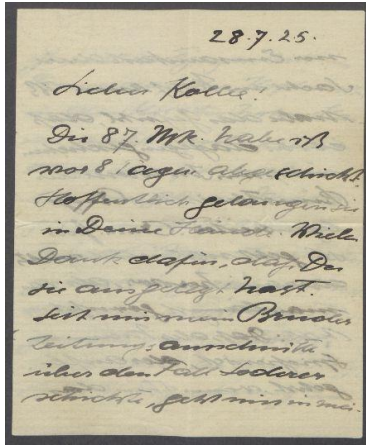 28.7.25.
Lieber Kolle!
Die 87 Mk. habe ich
vor 8 Tagen abgeschickt.
Hoffentlich gelangen sie
in Deine Hände. Vielen
Dank dafür, daß Du
sie ausgelegt hast.
Seit mir mein Bruder
Zeitungsausschnitte
über den Fall Lederer
schickte, geht mir in mei-